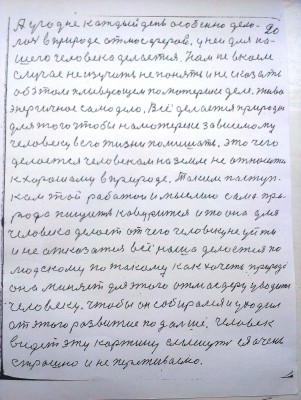 20
А угодне каждый день особенно дело-
лах в природе атмосферов. у ней для на-
шего человека делается. Нам не в коем
случае не изучить не понять и не сказать
об этом плывущем по материи деле. жива
энергичное само дело. Всё делается природы
для того чтобы на материи зависимому
человеку в его жизни помешать. Это чего
делается человеком на земле не относить
к хорошому в природе. Таким поступ-
кам той работой и мыслию сама при-
рода пишить ковурится и то она для
человека делает от чего человеку не уйти
и не отказатся всё наша делается по
людскому по такому как хочеть природе
она меняет для этого атмосферу уводить
человеку. чтобы он собирался и уходил
от этого развитие подальшё. Человек
видет эту картину слышить её очень
страшно и не переживаемо.